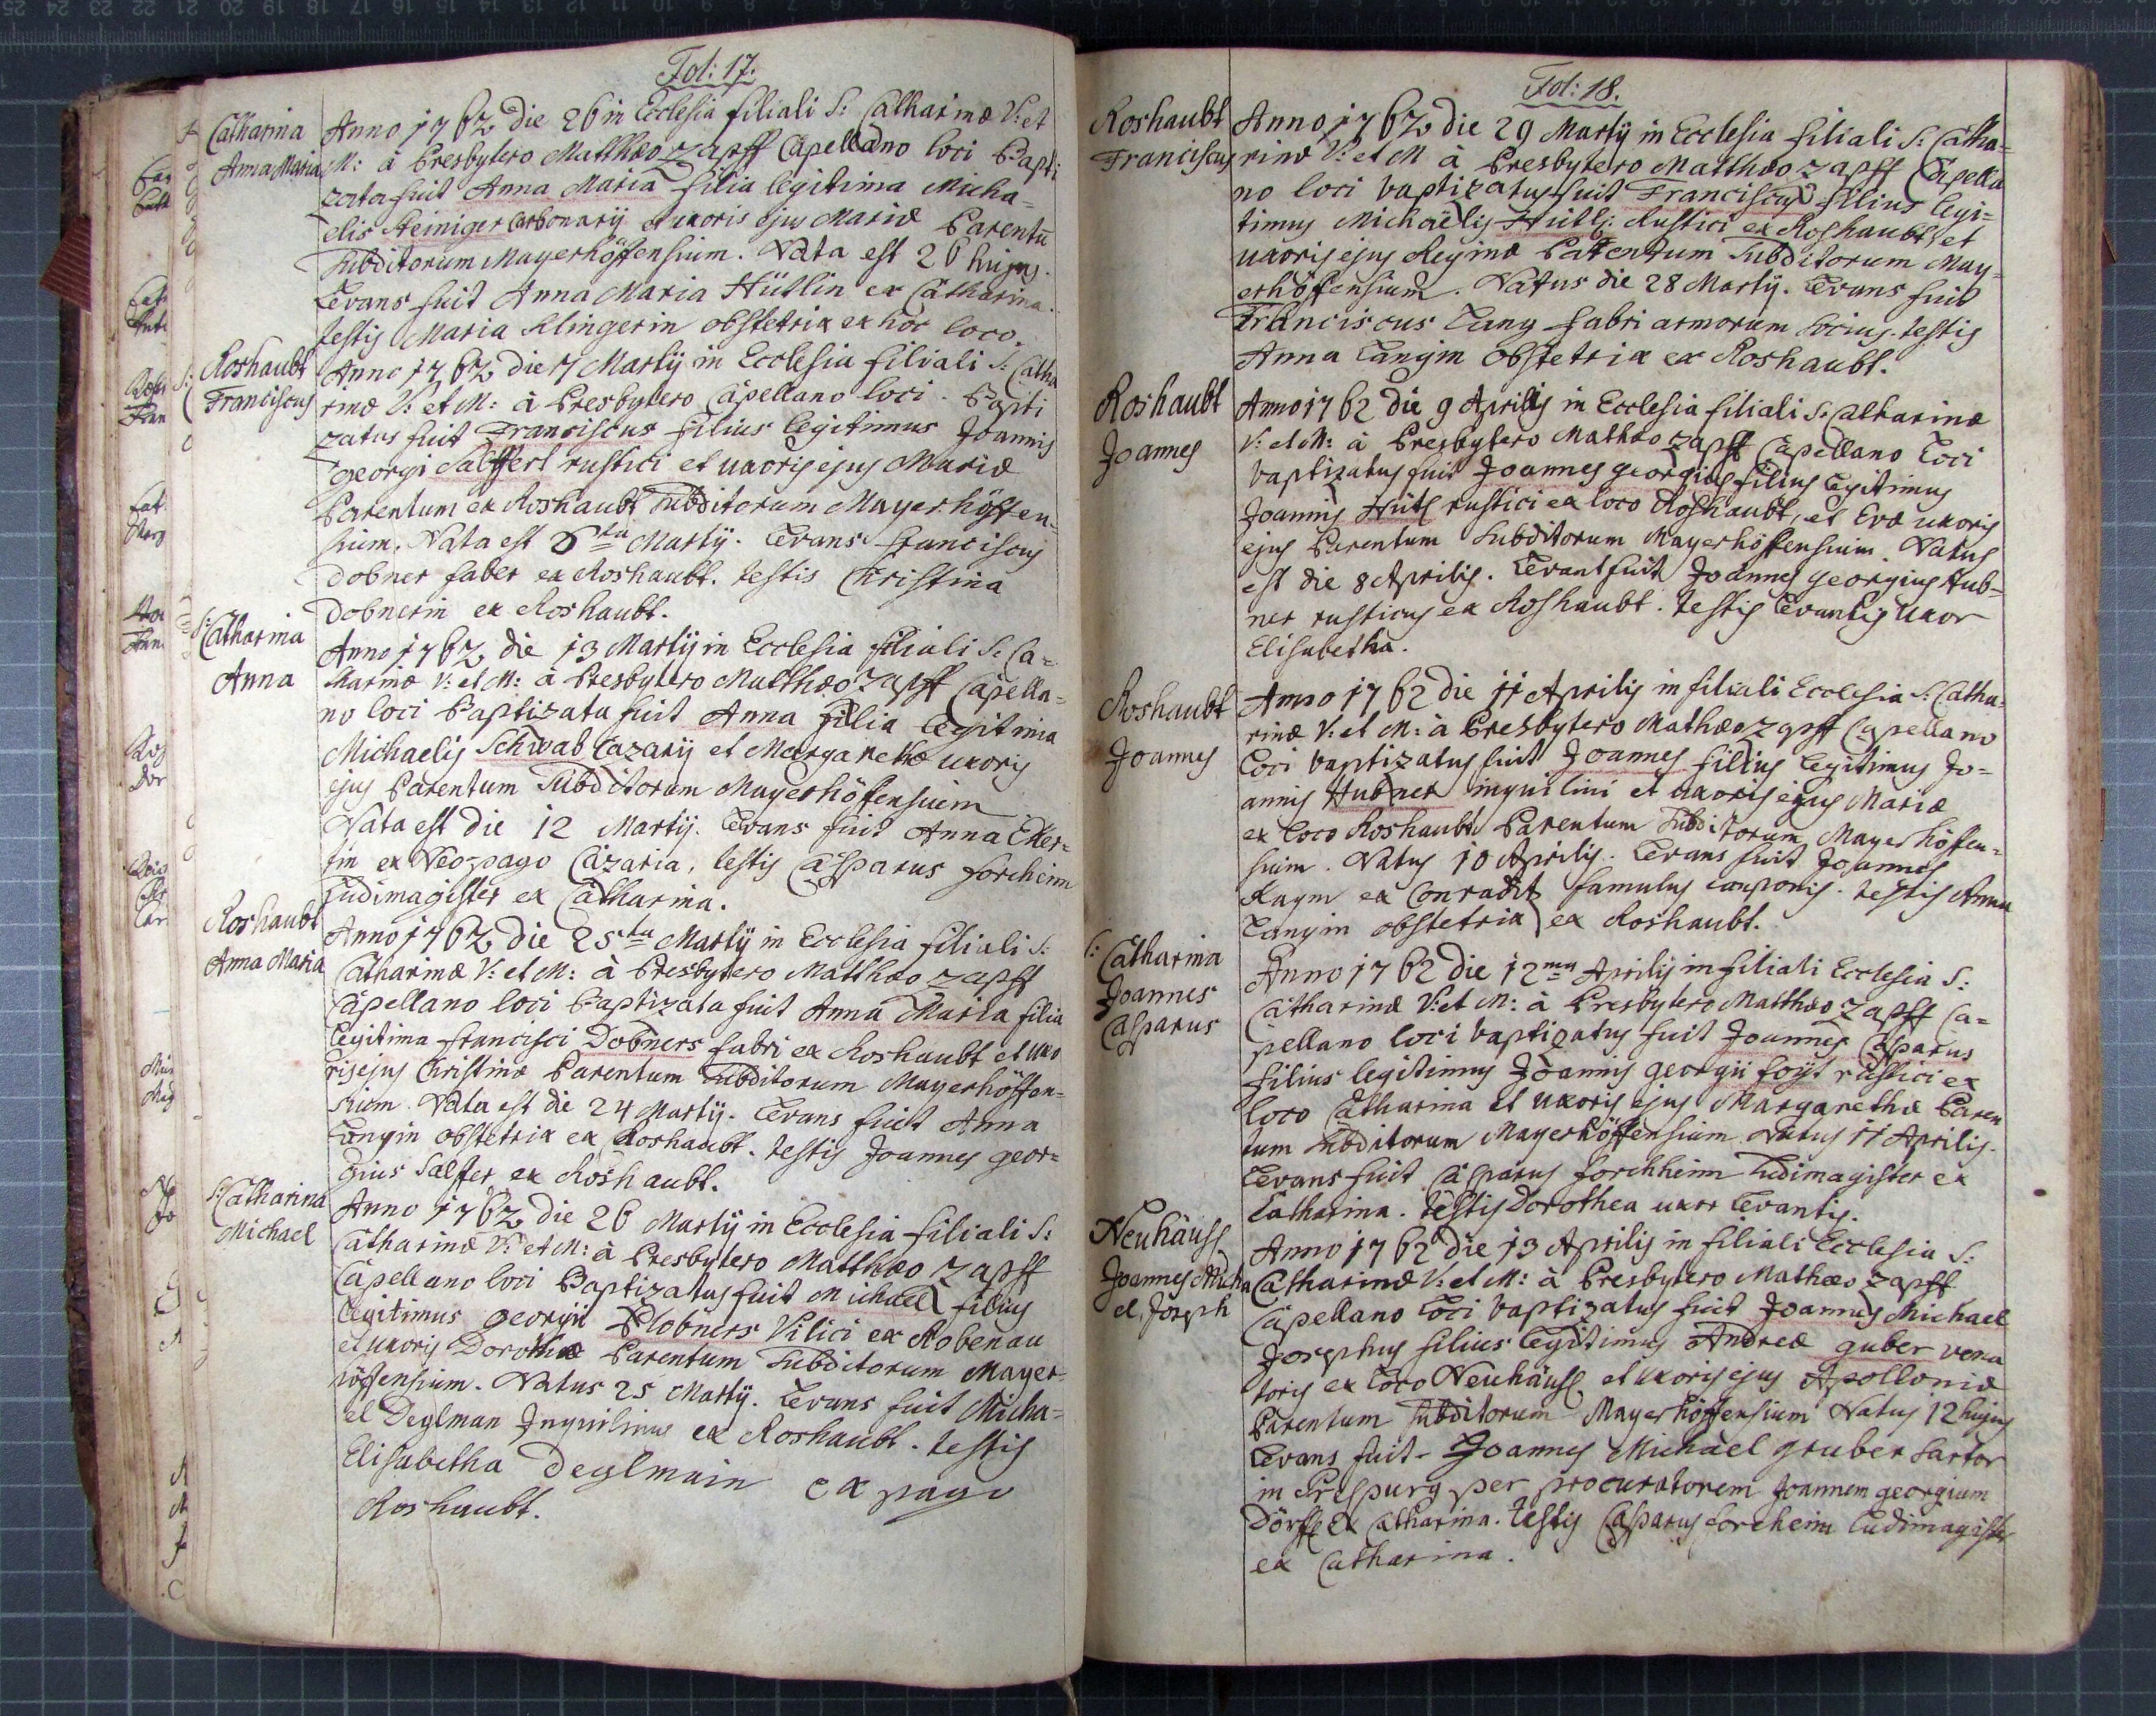 Fol: 17.
Catharina
Anna Maria
Anno 1762 die 26 in Ecclesia filiali S: Catharinæ V: et
M: à Presbytero Matthæo Zapff Capellano loci Bapti
zata fuit Anna Maria filia legitima Micha=
elis Steiniger Carbonarÿ et uxoris ejus Mariæ Parentū
Subditorum Mayerhöffensium. Nata est 26 hujus.
Levans fuit Anna Maria Hütlin ex Catharina.
testis Maria Klingerin obstetrix ex hoc loco.
Roshaubt
Franciscus
Anno 1762 die 7 Martÿ in Ecclesia filiali S: Catha
rinæ V: et M: à Presbytero Capellano loci. Bapti
zatus fuit Franciscus filius legitimus Joannis
georgi Salffert rustici et uxoris ejus Mariæ
Parentum ex Roshaubt Subditorum Mayerhöffen=
sium. Nata est 6ta Martÿ. Levans Franciscus
Dobner faber ex Roshaubt. testis Christina
Dobnerin ex Roshaubt.
S: Catharina
Anna
Anno 1762 die 13 Martÿ in Ecclesia filiali S: Ca=
tharinæ V: et M: à Presbytero Matthæo Zapff Capella=
no loci Baptizata fuit Anna filia legitima
Michaelis Schwab Cazarÿ et Margarethæ uxoris
ejus Parentum Subditorum Mayerhöffensium
Nata est die 12 Martÿ. Levans fuit Anna Eker=
tin ex Neopago Cazaria, testis Casparus forcheim
Ludimagister ex Catharina.
Roshaubt
Anna Maria
Anno 1762 die 25ta Martÿ in Ecclesia filiali S:
Catharinæ V: et M: à Presbytero Matthæo Zapff
Capellano loci Baptizata fuit Anna Maria filia
legitima Francisci Dobners fabri ex Roshaubt et uxo
ris ejus Christinæ Parentum Subditorum Mayerhöffen=
sium. Nata est die 24 Martÿ. Levans fuit Anna
Langin obstetrix ex Roshaubt. testis Joannes geor=
gius Salfer ex Roshaubt.
S: Catharina
Michael
Anno 1762 die 26 Martÿ in Ecclesia filiali S:
Catharinæ V: et M: à Presbytero Matthæo Zapff
Capellano loci Baptizatus fuit Michael filius
legitimus georgii Plobners Vilici ex Robenau
et uxoris Dorotheæ Parentum Subditorum Mayer=
höffensium. Natus 25 Martÿ. Levans fuit Micha=
el Deglman Inquilinus ex Roshaubt. testis
Elisabetha Deglmain ex pago
Roshaubt.
Fol: 18.
Roshaubt
Franciscus
Anno 1762 die 29 Martÿ in Ecclesia filiali S: Catha=
rinæ V: et M à Presbytero Matthæo Zapff Capella
no loci baptizatus fuit Franciscus filius legi=
timus Michaëlis Hütl: Rustici ex Roshaubt, et
uxoris ejus Reginæ Parentum Subditorum May=
erhöffensium. Natus die 28 Martÿ. Levans fuit
Franciscus Lang fabri armorum socius. testis
Anna Langin obstetrix ex Roshaubt.
Roshaubt
Joannes
Anno 1762 die 9 Aprilis in Ecclesia filiali S: Catharinæ
V: et M: à Presbytero Mathæo Zapff Capellano Loci
baptizatus fuit Joannes georgius filius legitimus
Joannis Hütl rustici ex loco Roshaubt, et Evæ uxoris
ejus Parentum Subditorum Mayerhöffensium. Natus
est die 8 Aprilis. Levans fuit Joannes georgius Hub=
ner rusticus ex Roshaubt. testis Levantis uxor
Elisabetha.
Roshaubt
Joannes
Anno 1762 die 11 Aprilis in filiali Ecclesia S: Catha=
rinæ V: et M: à Presbytero Mathæo Zapff Capellano
Loci baptizatus fuit Joannes filius legitimus Jo=
annis Hubner inquilini et uxoris ejus Mariæ
ex loco Roshaubt Parentum Subditorum Mayerhöffen=
sium. Natus 10 Aprilis. Levans fuit Joannes
Raym ex Conradit famulus cauponis. testis Anna
Langin obstetrix ex Roshaubt.
S: Catharina
Joannes
Casparus
Anno 1762 die 12ma Aprilis in filiali Ecclesia S:
Catharinæ V: et M: à Presbytero Matthæo Zapff Ca=
pellano loci baptizatus fuit Joannes Casparus
filius legitimus Joannis georgii foyt rustici ex
loco Catharina et uxoris ejus Margarethæ Paren
tum Subditorum Mayerhöffensium. Natus 11 Aprilis.
Levans fuit Casparus forchheim Ludimagister ex
Catharina. testis Dorothea uxor Levantis.
Neuhäusl
Joannes Micha
el, Joseph
Anno 1762 die 13 Aprilis in filiali Ecclesia S:
Catharinæ V: et M: à Presbytero Mathæo Zapff
Capellano Loci baptizatus fuit Joannes Michael
Josephus filius legitimus Andreæ guber vena
toris ex Loco Neuhäusl et uxoris ejus Apolloniæ
Parentum Subditorum Mayerhöffensium Natus 12 hujus
Levans fuit Joannes Michael gruber sartor
in Prespurg per procuratorem Joannem georgium
Dörffl ex Catharina. testis Casparus forcheim Ludimagister
ex Catharina.